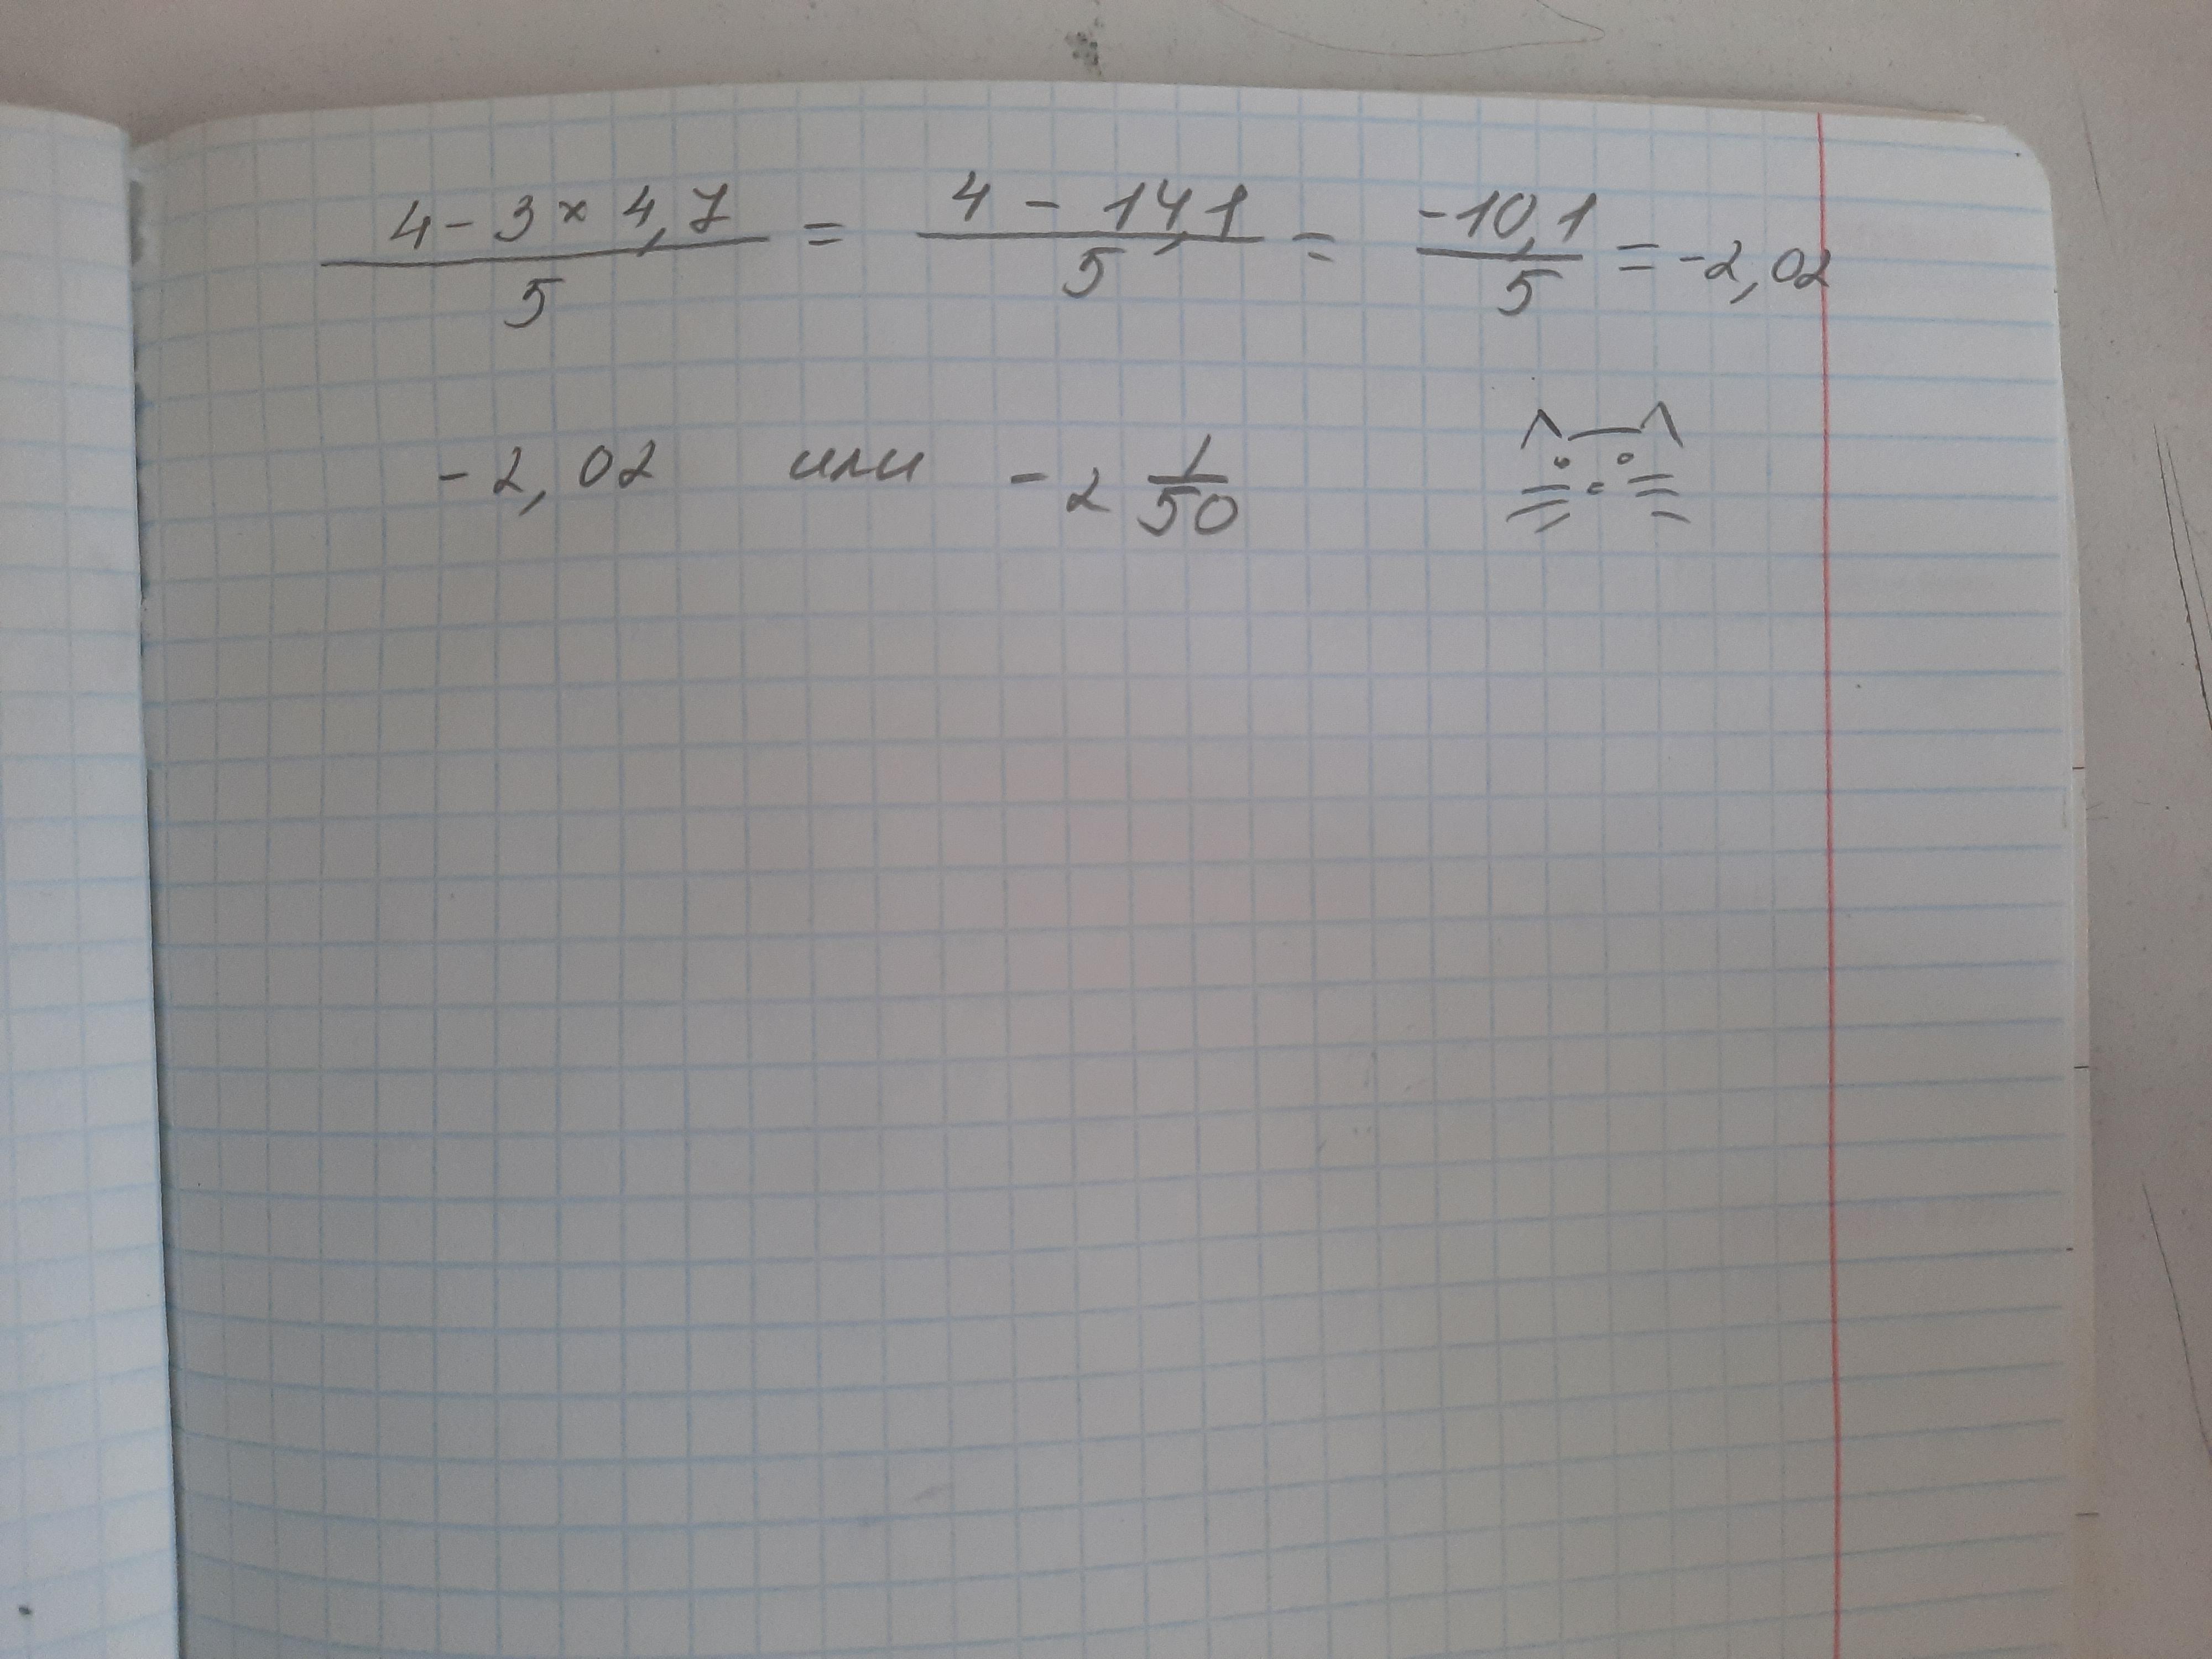 (4 - 3 × 4,7)/5 = (4 - 14,1)/5 = (-10,1)/5 = -2,02
-2,02 или -2 1/50